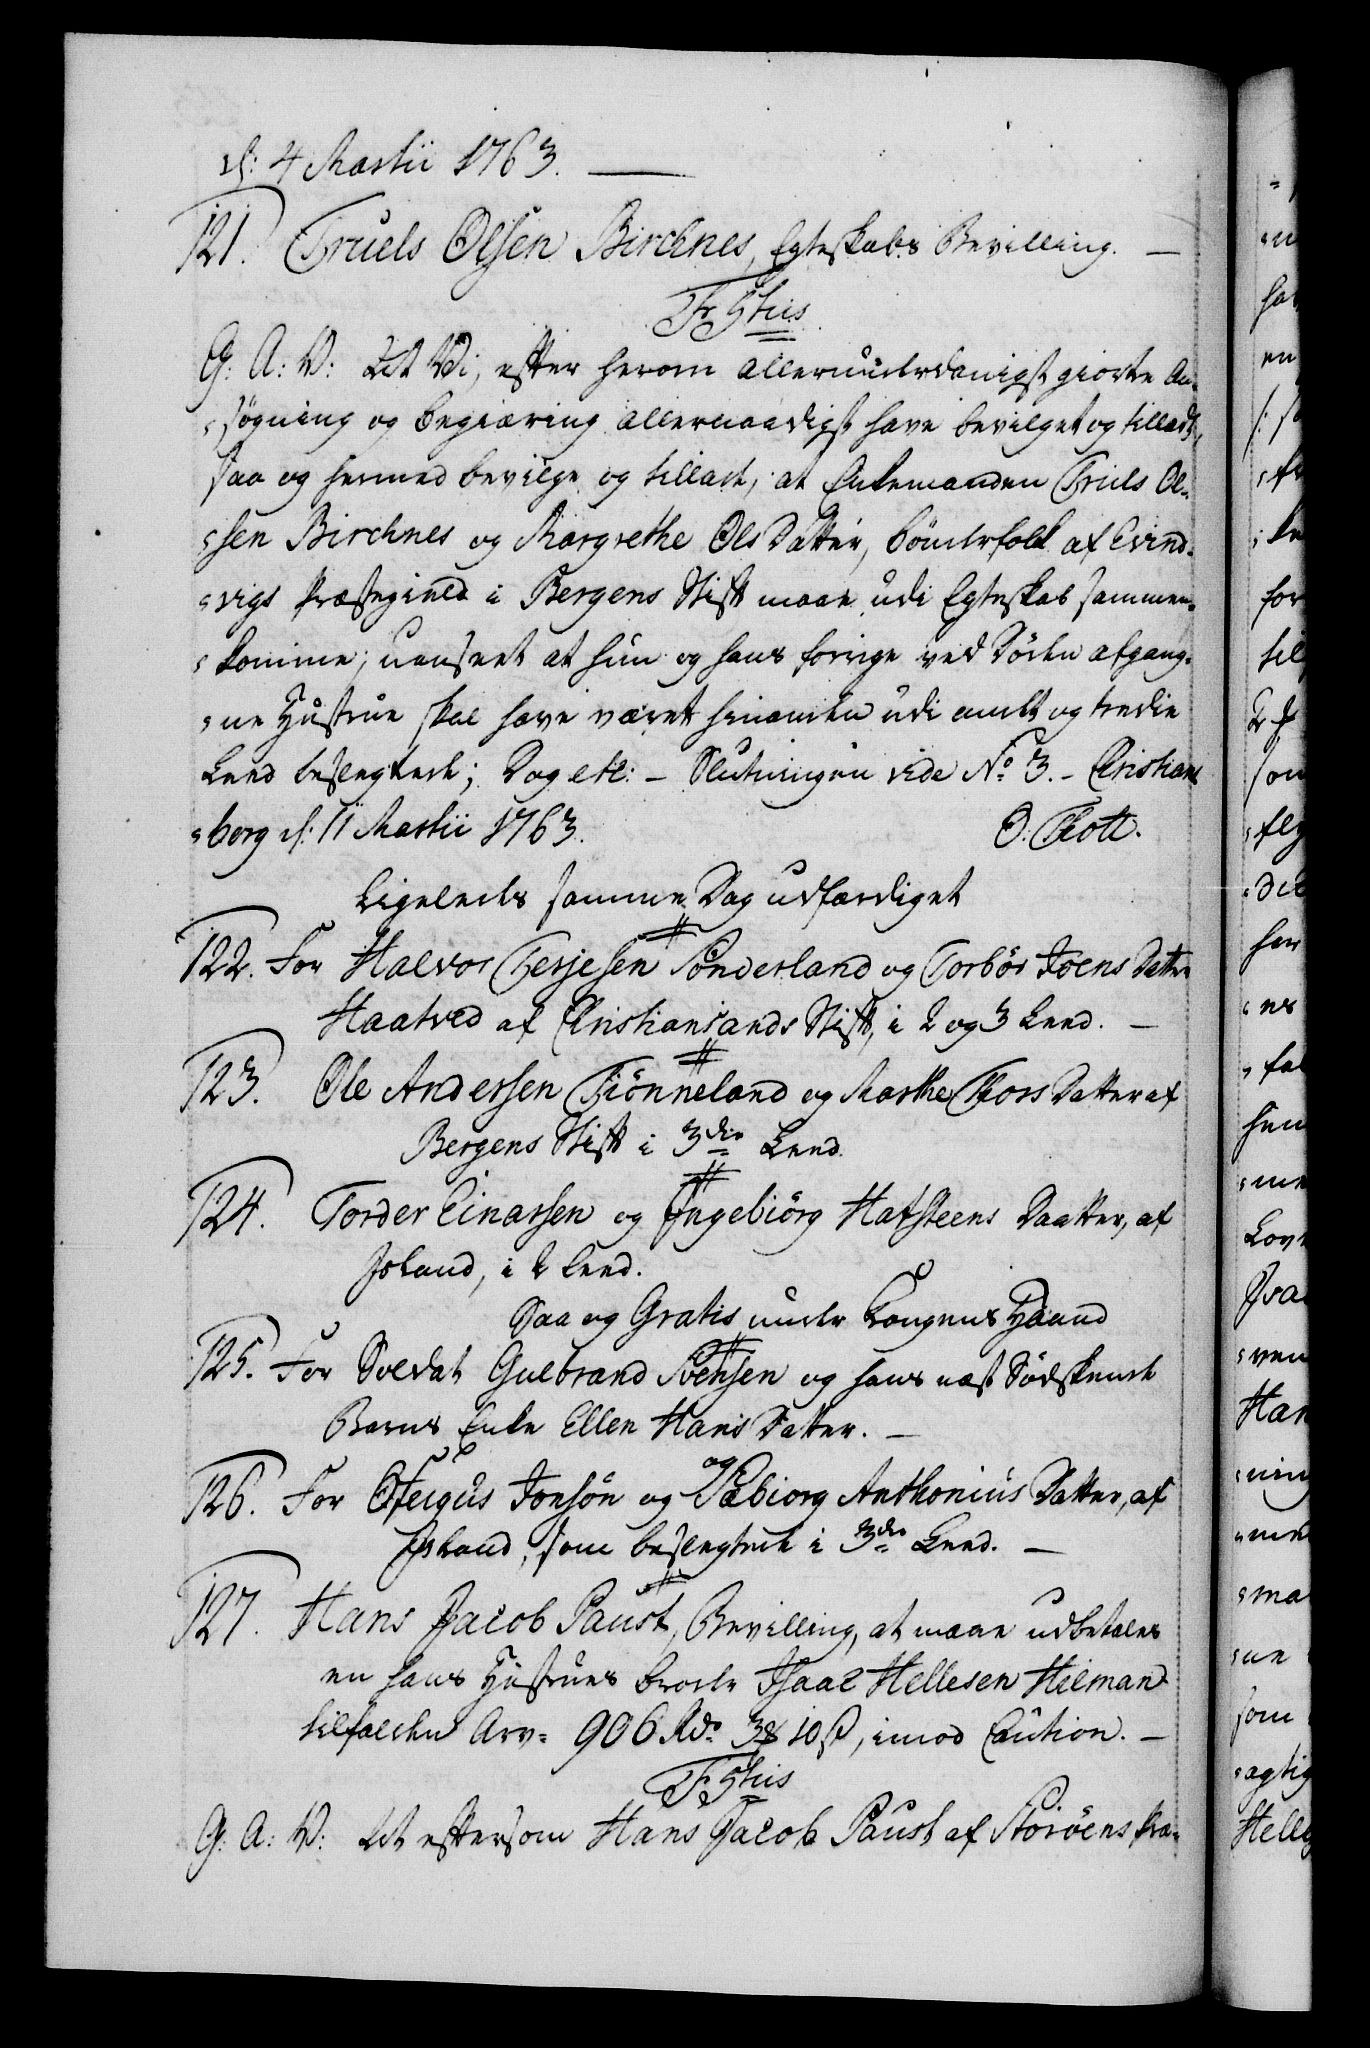 d: 4 Martii 1763.
121. Truels Olsen Birchnes, Egteskabs Bevilling.
Fr: 5tus
G: A: V: At Vi, efter herom allerunderdanigst giorte An-
søgning og begiæring allernaadigst have bevilget og tilladt,
saa og hermed bevilge og tillade, at Enkemanden Truls Ol-
sen Birchnes og Margrethe Ols Datter, bønderfolk af Evind-
vigs Præstegield i Bergens Stift maae udi Egteskab sammen-
komme; uanseet at hun og hans forrige ved Døden afgang-
ne Hustrue skal have været hinanden udi andet og tredie
Leed beslegtede; Dog etc: - Slutningen vide No 3. - Christians-
borg d: 11 Martii 1763. O. Thott.
Ligeledes samme Dag udfærdiget
122. For Halvor Terjesen Sønderland og Torbør Joens Datter
Haatved af Christiansands Stift, i 2 og 3 Leed.
123. Ole Andersen Tiønneland og Marthe Thors Datter af
Bergens Stift i 3die Leed.
124. Torder Einarsen og Ingebiörg Hafsteens Daatter, af
Island, i 2 Leed.
Saa og Gratis under Kongens Haand
125. For Soldat Gulbrand Svensen og hans næst Sødskende
Barns Enke Ellen Hans Datter.
126. For Ofeigus Jonsön og Sæbiorg Anthonius Datter, af
Island, som beslegtede i 3die Leed.
127. Hans Jacob Paust, Bevilling, at maae udbetales
en hans Hustrues broder Isaac Hellesen Hilman
tilfalden Arv- 906 Rdr 3 10 ß, imod Caution.
Fr: 5tus
G: A: V: At eftersom Hans Jacob Paust af Storøens Præ-